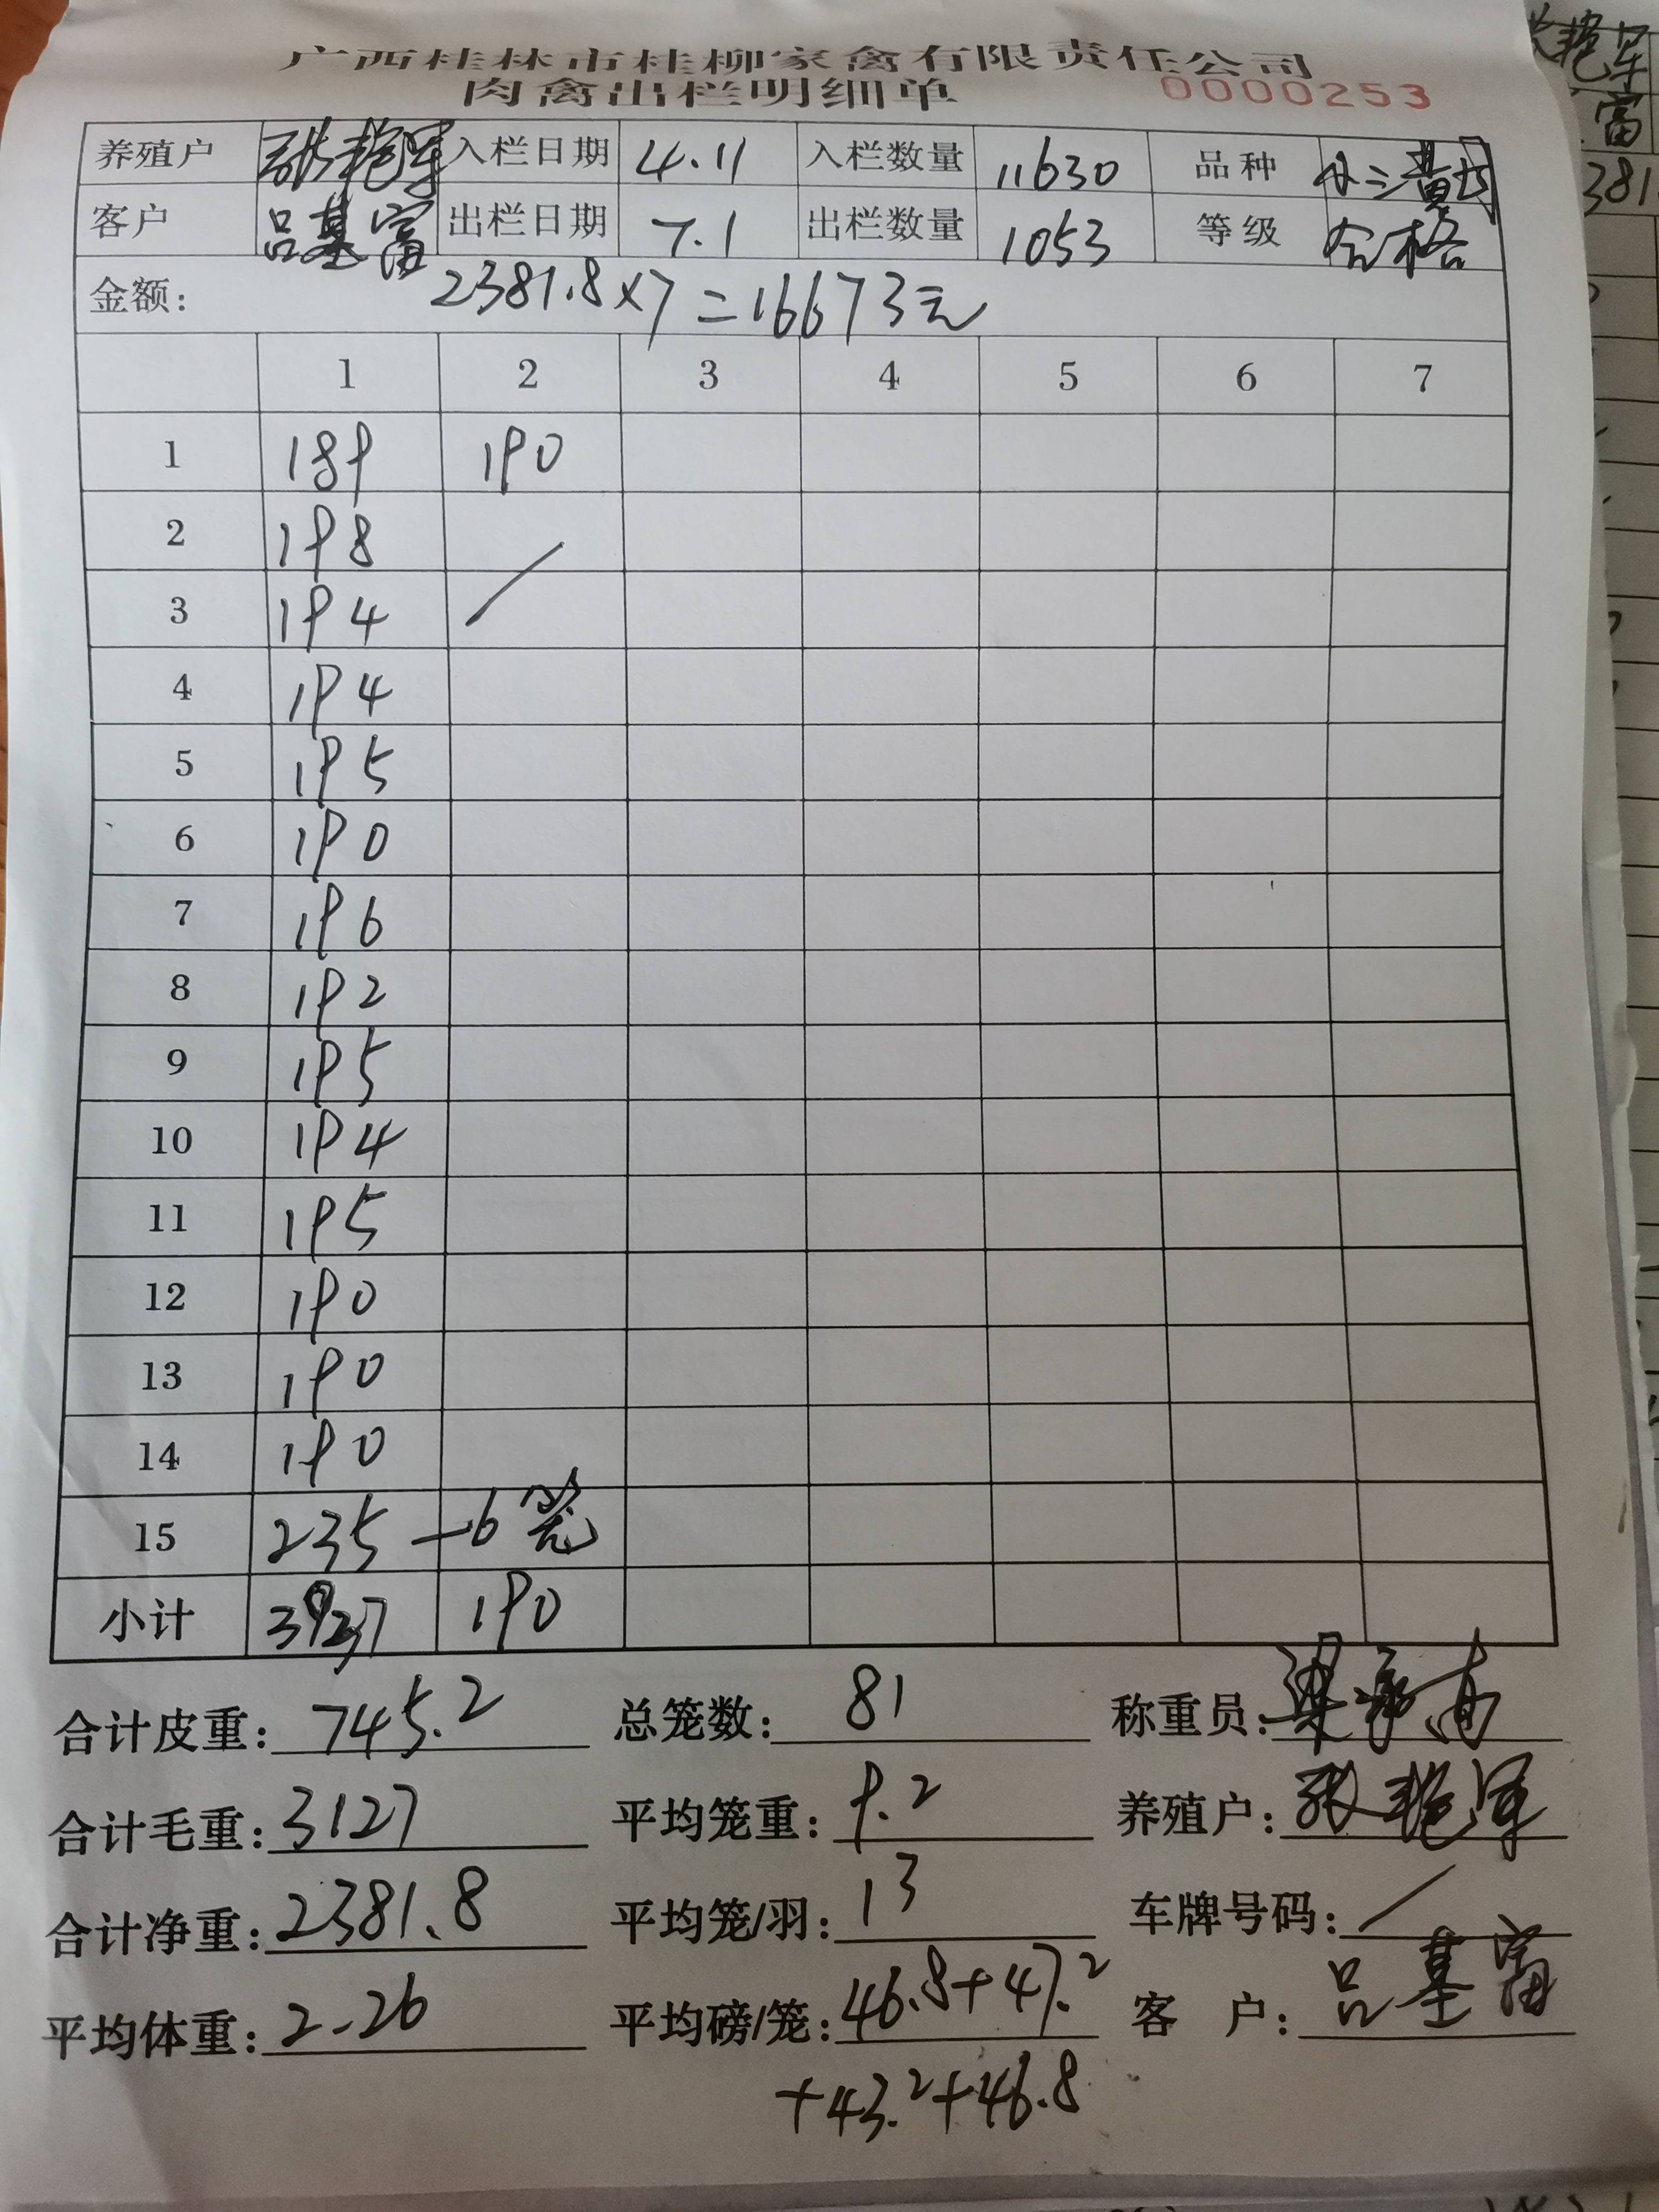 广西桂林市桂柳家禽有限责任公司
肉禽出栏明细单 0000253
养殖户 张艳军 入栏日期 4.11 入栏数量 11630 品种
客户 吕基富 出栏日期 7.1 出栏数量 1053 等级 合格
金额: 2381.8×7=16673元
1 2 3 4 5 6 7
1 189 190
2 198 /
3 194
4 194
5 195
6 190
7 196
8 192
9 195
10 194
11 195
12 190
13 190
14 190
15 235 — 6笼
小计 190
合计皮重: 745.2 总笼数: 81 称重员:
合计毛重: 3127 平均笼重: 9.2 养殖户: 张艳军
合计净重: 2381.8 平均笼/羽: 13 车牌号码: /
平均体重: 2.26 平均磅/笼: 46.8+47.2 客 户: 吕基富
+43.2+46.8